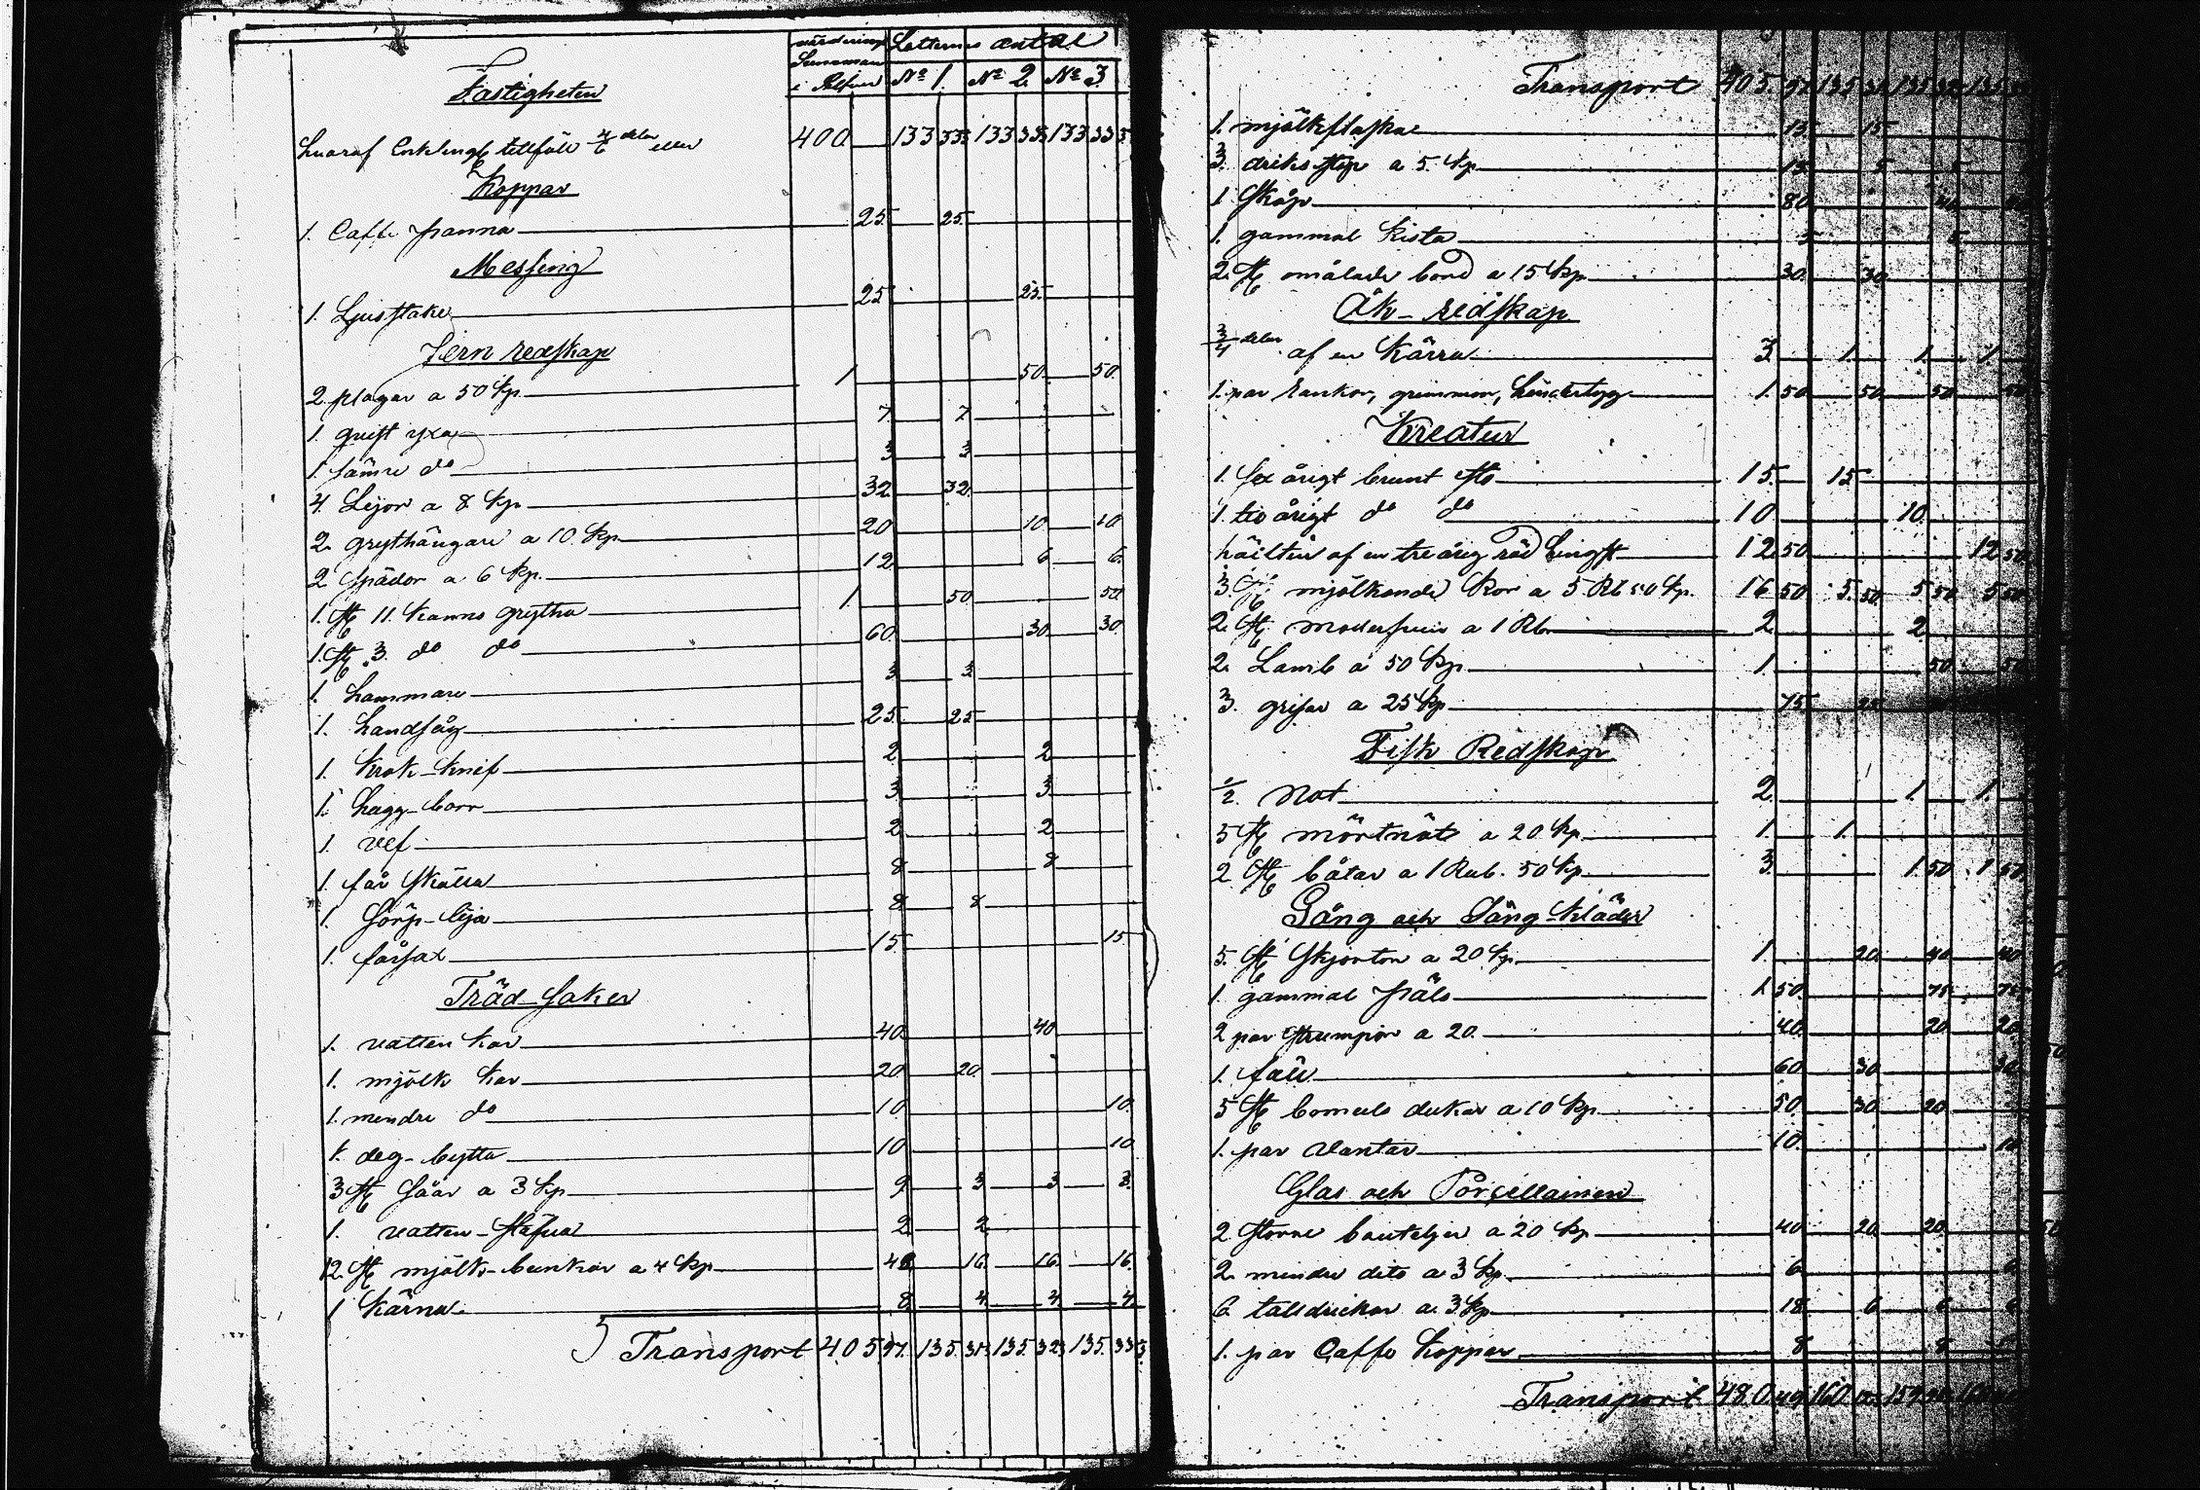 värderings Lotternes antal
Summan
i Silfver No 1. No 2. No 3
Fastigheten
hvaraf Enklingens tillföll delar eller 400 133 33⅓ 133 33⅓ 133 33⅓
Koppar
1. Caffe panna 25 25
Messing
1. Ljusstake 25 25
Jern redskap
2. plogar a 50 Kp 1 50 50
1. quist yxa 7 7
1. sämre do 3 3
4. Lijor a 8 Kp 32 32
2. grythängare a 10 Kp 20 10 10
2 spädor a 6 Kp. 12 6 6
1. st 11. kanns gryta 1. 50 50
1. st 3. do do 60 30 30
1. hammare 3 3
1. handsåg 25 25
1. Krok-knif 2 2
1. hagg-borr 3 3
1. vef 2 2
1. får skälla 8 8
1. Görp-lija 8 8
1. fårsax 15 15
Träd-saker
1. vatten kar 40 40
1. mjölk kar 20 20
1. mindre do 10 10
1. deg-bytta 10 10
3 st såar a 3 Kp 9 3 3 3
1. vatten-stäfva 2 2
12. st mjölk-bunkar a 4 Kp 48 16 16 16
1 Kärna 8 4 4
Transport 405 97. 135. 31⅓ 135. 32⅓ 135. 33⅓
Transport 405. 97 135 31 135 32 135
1. mjölkflaska 15 15
3. driks stop a 5. Kp 15 5 5
1 Skåp 80
1. gammal Kista 5 5
2. st omålade bord a 15 Kp 30 30
Åk-redskap
¾ delar af en Kärra 3 1. 1. 1.
1. par rankor, grimmor, 1. 50 50 50 50
Kreatur
1. sex årigt brunt sto 15 15
1. tio årigt do do 10 10
hälften af en tre årig röd hingst 12 50 12 50
3. st mjölkande kor a 5 Rb 50 Kp. 16 50 5. 50 5 50 5 50
2. st moderfåir a 1 Rb 2 2
2. Lamb a 50 Kp 1. 50 50
3. grisar a 25 Kp 75 25
Fisk Redskap
½. Not 2. 1. 1.
5 st mörtnät a 20. Kp 1. 1.
2 st båtar a 1 Rub. 50 Kp 3. 1 50 1 50
Gång och Säng-kläder
5. st Skjortor a 20 Kp 1. 20 40 40
1. gammal päls 1 50 75 75
2 par strumpor a 20. 40 20 20
1. fäll 60 30 30
5 st bomuls dukar a 10 Kp 50 30 20
1. par vantar 10 10
Glas och Porcellainer
2 större bouteljer a 20 Kp 40 20 20
2. mindre dito a 3 Kp. 6 6
6. tallrickar a 3 Kp 18 6 6 6
1. par Caffe koppar 8 8
Transport 480. 49 160